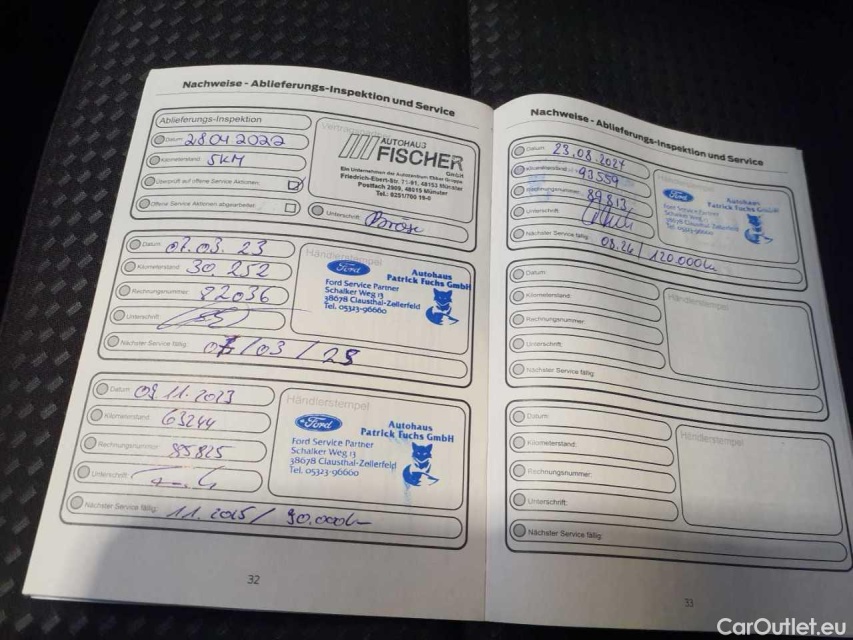 Nachweise - Ablieferungs-Inspektion und Service
Ablieferungs-Inspektion
Datum: 28 04 2022
Kilometerstand: 5KM
Überprüft auf offene Service Aktionen:
Offene Service Aktionen abgearbeitet:
Vertragspartner
AUTOHAUS
FISCHER
GmbH
Ein Unternehmen der Autozentrum Ebker Gruppe
Friedrich-Ebert-Str. 71-91, 48153 Münster
Postfach 2909, 48015 Münster
Tel.: 0251/700 18-0
Unterschrift:
Datum: 07.03.23
Kilometerstand: 30 252
Rechnungsnummer: 82036
Unterschrift:
Nächster Service fällig: 07/03/25
Händlerstempel
Ford
Autohaus
Patrick Fuchs GmbH
Ford Service Partner
Schalker Weg 13
38678 Clausthal-Zellerfeld
Tel. 05323-96660
Datum: 09.11.2023
Kilometerstand: 63244
Rechnungsnummer: 85825
Unterschrift:
Nächster Service fällig: 11.2025 / 90.000k
Händlerstempel
Ford
Autohaus
Patrick Fuchs GmbH
Ford Service Partner
Schalker Weg 13
38678 Clausthal-Zellerfeld
Tel. 05323-96660
32
Nachweise - Ablieferungs-Inspektion und Service
Datum: 23.08.2024
Kilometerstand: 93559
Rechnungsnummer: 89813
Unterschrift:
Nächster Service fällig: 08.26 / 120.000k
Händlerstempel
Ford
Autohaus
Patrick Fuchs GmbH
Ford Service Partner
Schalker Weg 13
38678 Clausthal-Zellerfeld
Tel. 05323-96660
Datum:
Kilometerstand:
Rechnungsnummer:
Unterschrift:
Nächster Service fällig:
Händlerstempel
Datum:
Kilometerstand:
Rechnungsnummer:
Unterschrift:
Nächster Service fällig:
Händlerstempel
33
CarOutlet.eu